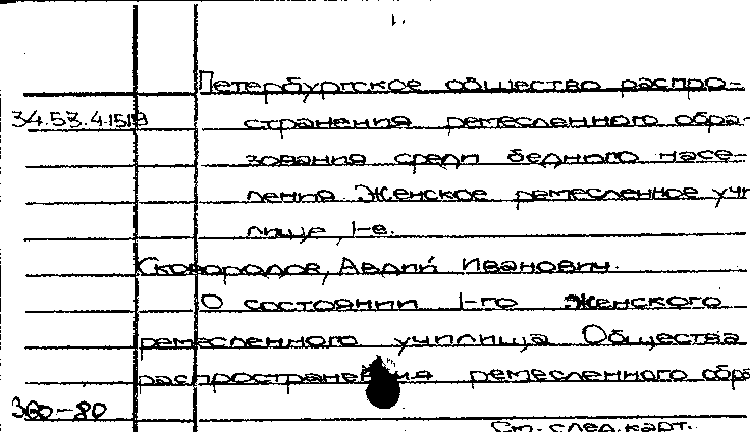 1.
Петербургское общество распро-
34.53.4.1519 странения ремесленного обра-
зования среди бедного насе-
ления Женское ремесленное учи
лище, 1-е.
Сковородов, Авдий Иванович.
О состоянии 1-го Женского
ремесленного училища Общества
распространения ремесленного обра
360-80
См. след. карт.